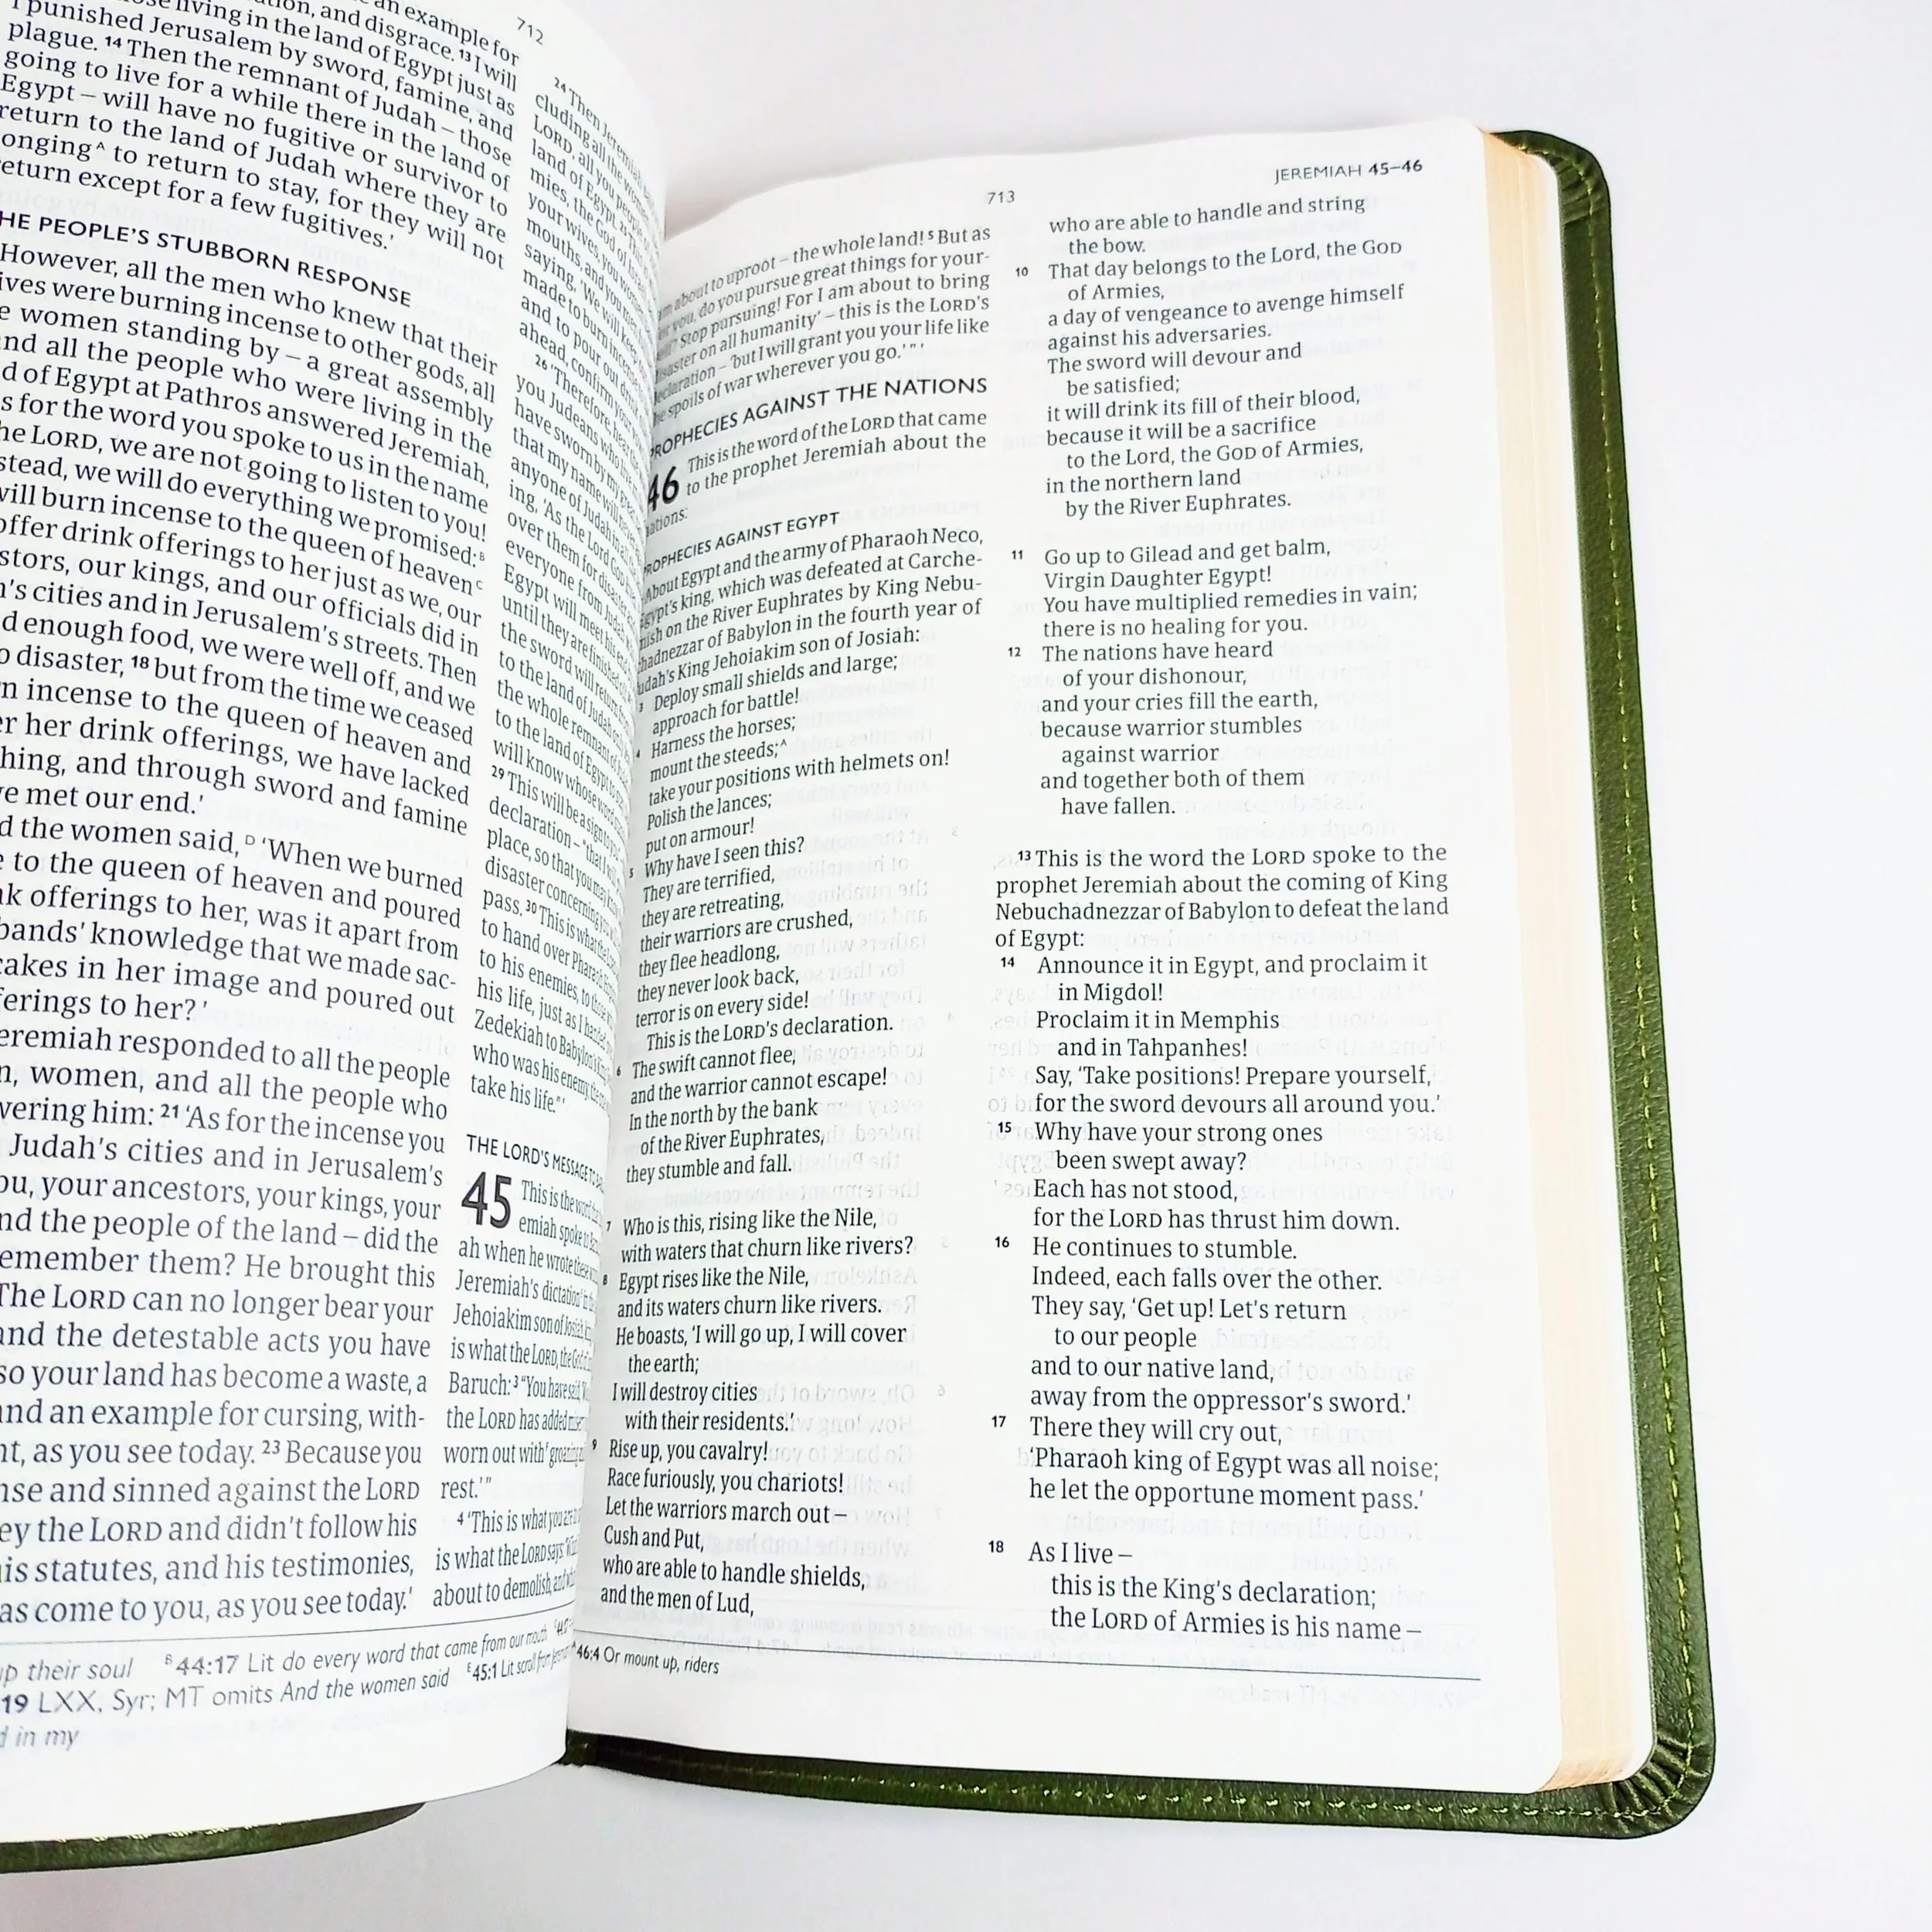 712
an example for
and disgrace. ¹³ I will
living in the land of Egypt just as
I punished Jerusalem by sword, famine, and
plague. ¹⁴ Then the remnant of Judah – those
going to live for a while there in the land of
Egypt – will have no fugitive or survivor to
return to the land of Judah where they are
to return to stay, for they will not
except for a few fugitives.'
PEOPLE'S STUBBORN RESPONSE
However, all the men who knew that their
were burning incense to other gods, all
women standing by – a great assembly
and all the people who were living in the
of Egypt at Pathros answered Jeremiah,
for the word you spoke to us in the name
the LORD, we are not going to listen to you!
we will do everything we promised:ᴮ
will burn incense to the queen of heavenᶜ
offer drink offerings to her just as we, our
our kings, and our officials did in
cities and in Jerusalem's streets. Then
enough food, we were well off, and we
disaster, ¹⁸ but from the time we ceased
incense to the queen of heaven and
her drink offerings, we have lacked
and through sword and famine
met our end.'
the women said,ᴰ 'When we burned
to the queen of heaven and poured
offerings to her, was it apart from
knowledge that we made sac-
cakes in her image and poured out
to her?'
responded to all the people
women, and all the people who
him: ²¹ 'As for the incense you
Judah's cities and in Jerusalem's
your ancestors, your kings, your
and the people of the land – did the
them? He brought this
The LORD can no longer bear your
and the detestable acts you have
so your land has become a waste, a
and an example for cursing, with-
as you see today. ²³ Because you
and sinned against the LORD
the LORD and didn't follow his
statutes, and his testimonies,
has come to you, as you see today.'
²⁴ Then Jeremiah
cluding all the
LORD, all you people
land of Egypt. ²⁵
mies, the God of
your wives, you
mouths, and you
saying, 'We will keep
made to burn incense
and to pour out
ahead, confirm your
²⁶ 'Therefore, hear
you Judeans who
have sworn by my great
that my name will
anyone of Judah in all the
ing, 'As the Lord GOD
over them for disaster
everyone from Judah
Egypt will meet his
until they are finished
the sword will return
to the land of Judah
the whole remnant of
to the land of Egypt to
will know whose word
²⁹ This will be a sign to
declaration – 'that I
place, so that you may
disaster concerning you
pass. ³⁰ This is what the
to hand over Pharaoh
to his enemies, to those
his life, just as I handed
Zedekiah to Babylon's
who was his enemy, the
take his life.'"'
THE LORD'S MESSAGE TO
45 This is the word
emiah spoke to
ah when he wrote these
Jeremiah's dictation
Jehoiakim son of Josiah
is what the LORD, the God of
Baruch: ³ "You have said,
the LORD has added
worn out with groaning
rest.'"
⁴ 'This is what you are to
is what the LORD says:
about to demolish, and
up their soul ᴮ44:17 Lit do every word that came from our mouth
19 LXX, Syr; MT omits And the women said ᴱ45:1 Lit scroll from
in my
713
JEREMIAH 45–46
about to uproot – the whole land! ⁵ But as
you, do you pursue great things for your-
Stop pursuing! For I am about to bring
disaster on all humanity' – this is the LORD's
declaration – 'but I will grant you your life like
the spoils of war wherever you go.'"'
PROPHECIES AGAINST THE NATIONS
46 This is the word of the LORD that came
to the prophet Jeremiah about the
nations:
PROPHECIES AGAINST EGYPT
About Egypt and the army of Pharaoh Neco,
Egypt's king, which was defeated at Carche-
mish on the River Euphrates by King Nebu-
chadnezzar of Babylon in the fourth year of
Judah's King Jehoiakim son of Josiah:
³ Deploy small shields and large;
approach for battle!
⁴ Harness the horses;
mount the steeds;ᴬ
take your positions with helmets on!
Polish the lances;
put on armour!
⁵ Why have I seen this?
They are terrified,
they are retreating,
their warriors are crushed,
they flee headlong,
they never look back,
terror is on every side!
This is the LORD's declaration.
⁶ The swift cannot flee,
and the warrior cannot escape!
In the north by the bank
of the River Euphrates,
they stumble and fall.
⁷ Who is this, rising like the Nile,
with waters that churn like rivers?
⁸ Egypt rises like the Nile,
and its waters churn like rivers.
He boasts, 'I will go up, I will cover
the earth;
I will destroy cities
with their residents.'
⁹ Rise up, you cavalry!
Race furiously, you chariots!
Let the warriors march out –
Cush and Put,
who are able to handle shields,
and the men of Lud,
who are able to handle and string
the bow.
¹⁰ That day belongs to the Lord, the GOD
of Armies,
a day of vengeance to avenge himself
against his adversaries.
The sword will devour and
be satisfied;
it will drink its fill of their blood,
because it will be a sacrifice
to the Lord, the GOD of Armies,
in the northern land
by the River Euphrates.
¹¹ Go up to Gilead and get balm,
Virgin Daughter Egypt!
You have multiplied remedies in vain;
there is no healing for you.
¹² The nations have heard
of your dishonour,
and your cries fill the earth,
because warrior stumbles
against warrior
and together both of them
have fallen.
¹³ This is the word the LORD spoke to the
prophet Jeremiah about the coming of King
Nebuchadnezzar of Babylon to defeat the land
of Egypt:
¹⁴ Announce it in Egypt, and proclaim it
in Migdol!
Proclaim it in Memphis
and in Tahpanhes!
Say, 'Take positions! Prepare yourself,
for the sword devours all around you.'
¹⁵ Why have your strong ones
been swept away?
Each has not stood,
for the LORD has thrust him down.
¹⁶ He continues to stumble.
Indeed, each falls over the other.
They say, 'Get up! Let's return
to our people
and to our native land,
away from the oppressor's sword.'
¹⁷ There they will cry out,
'Pharaoh king of Egypt was all noise;
he let the opportune moment pass.'
¹⁸ As I live –
this is the King's declaration;
the LORD of Armies is his name –
ᴬ46:4 Or mount up, riders